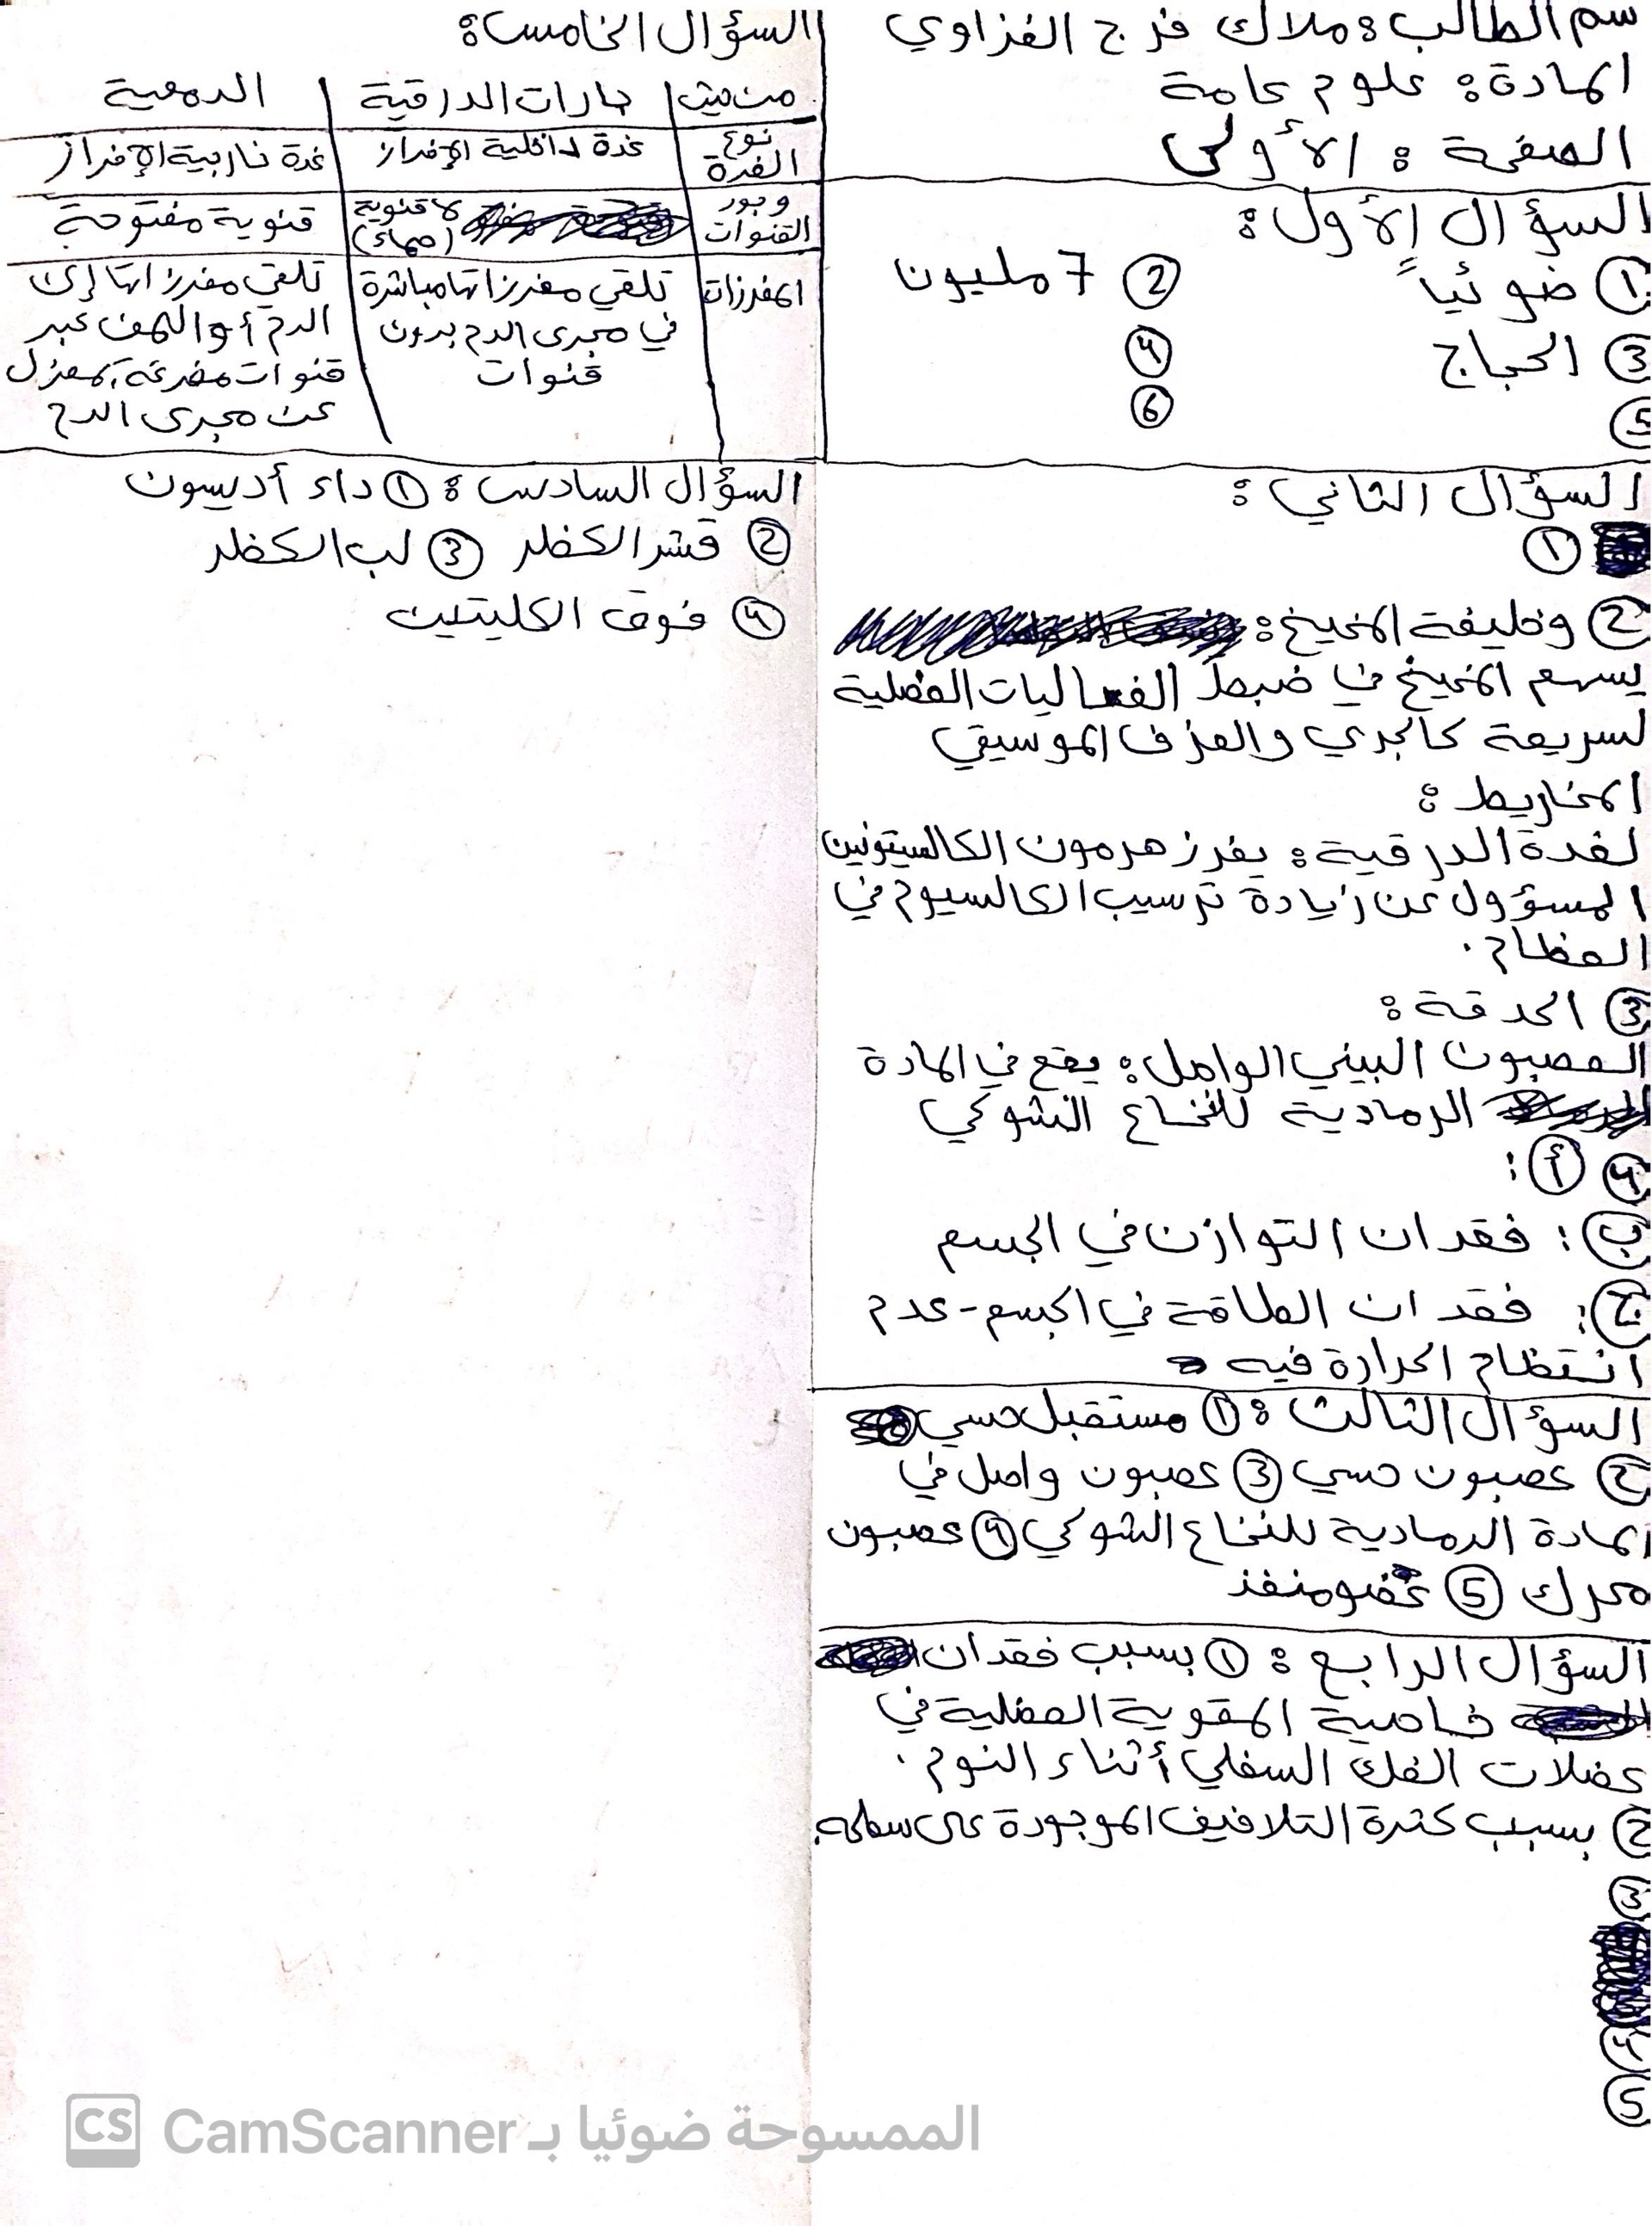 سم الطالب: ملاك فرج الغزاوي
المادة: علوم عامة
الصفحة: الأولى
السؤال الأول:
① ضوئياً ② 7 مليون
③ الحجاج ④
⑤ ⑥
السؤال الثاني:
①
② وظيفة المخيخ:
يسهم المخيخ في ضبط الفعاليات العضلية
لسريعة كالجري والعزف الموسيقي
المخاريط:
لغدة الدرقية: يفرز هرمون الكالسيتونين
المسؤول عن زيادة ترسيب الكالسيوم في
العظام.
③ الحدقة:
العصبون البيني الواصل: يقع في المادة
الرمادية للنخاع الشوكي
④ أ:
ب: فقدان التوازن في الجسم
ج: فقدان الطاقة في الجسم - عدم
انتظام الحرارة فيه
السؤال الثالث: ① مستقبل حسي
② عصبون حسي ③ عصبون واصل في
المادة الرمادية للنخاع الشوكي ④ عصبون
محرك ⑤ عضو منفذ
السؤال الرابع: ① بسبب فقدان
خاصية المقوية العضلية في
عضلات الفك السفلي أثناء النوم.
② بسبب كثرة التلافيف الموجودة على سطحه.
③
④
⑤
السؤال الخامس:
من حيث | جارات الدرقية | الدمعية
نوع الغدة | غدة داخلية الإفراز | غدة خارجية الإفراز
وجود القنوات | لا قنوية (صماء) | قنوية مفتوحة
المفرزات | تلقي مفرزاتها مباشرة | تلقي مفرزاتها إلى
في مجرى الدم بدون | الدم أو اللمف عبر
قنوات | قنوات مفرغة بمعزل
عن مجرى الدم
السؤال السادس: ① داء أديسون
② قشر الكظر ③ لب الكظر
④ فوق الكليتين
CS CamScanner الممسوحة ضوئيا بـ